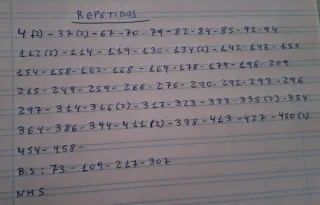 REPETIDOS
4(2) - 37(2) - 67 - 70 - 79 - 82 - 84 - 85 - 92 - 94
112(2) - 114 - 119 - 130 - 134(2) - 142 - 143 - 153
154 - 158 - 162 - 168 - 169 - 178 - 179 - 196 - 209
215 - 249 - 259 - 266 - 276 - 290 - 292 - 293 - 296
297 - 314 - 316(2) - 317 - 323 - 333 - 335(2) - 354
364 - 386 - 394 - 411(2) - 398 - 413 - 427 - 450(2)
454 - 458 -
B.S : 73 - 109 - 217 - 307
NHS